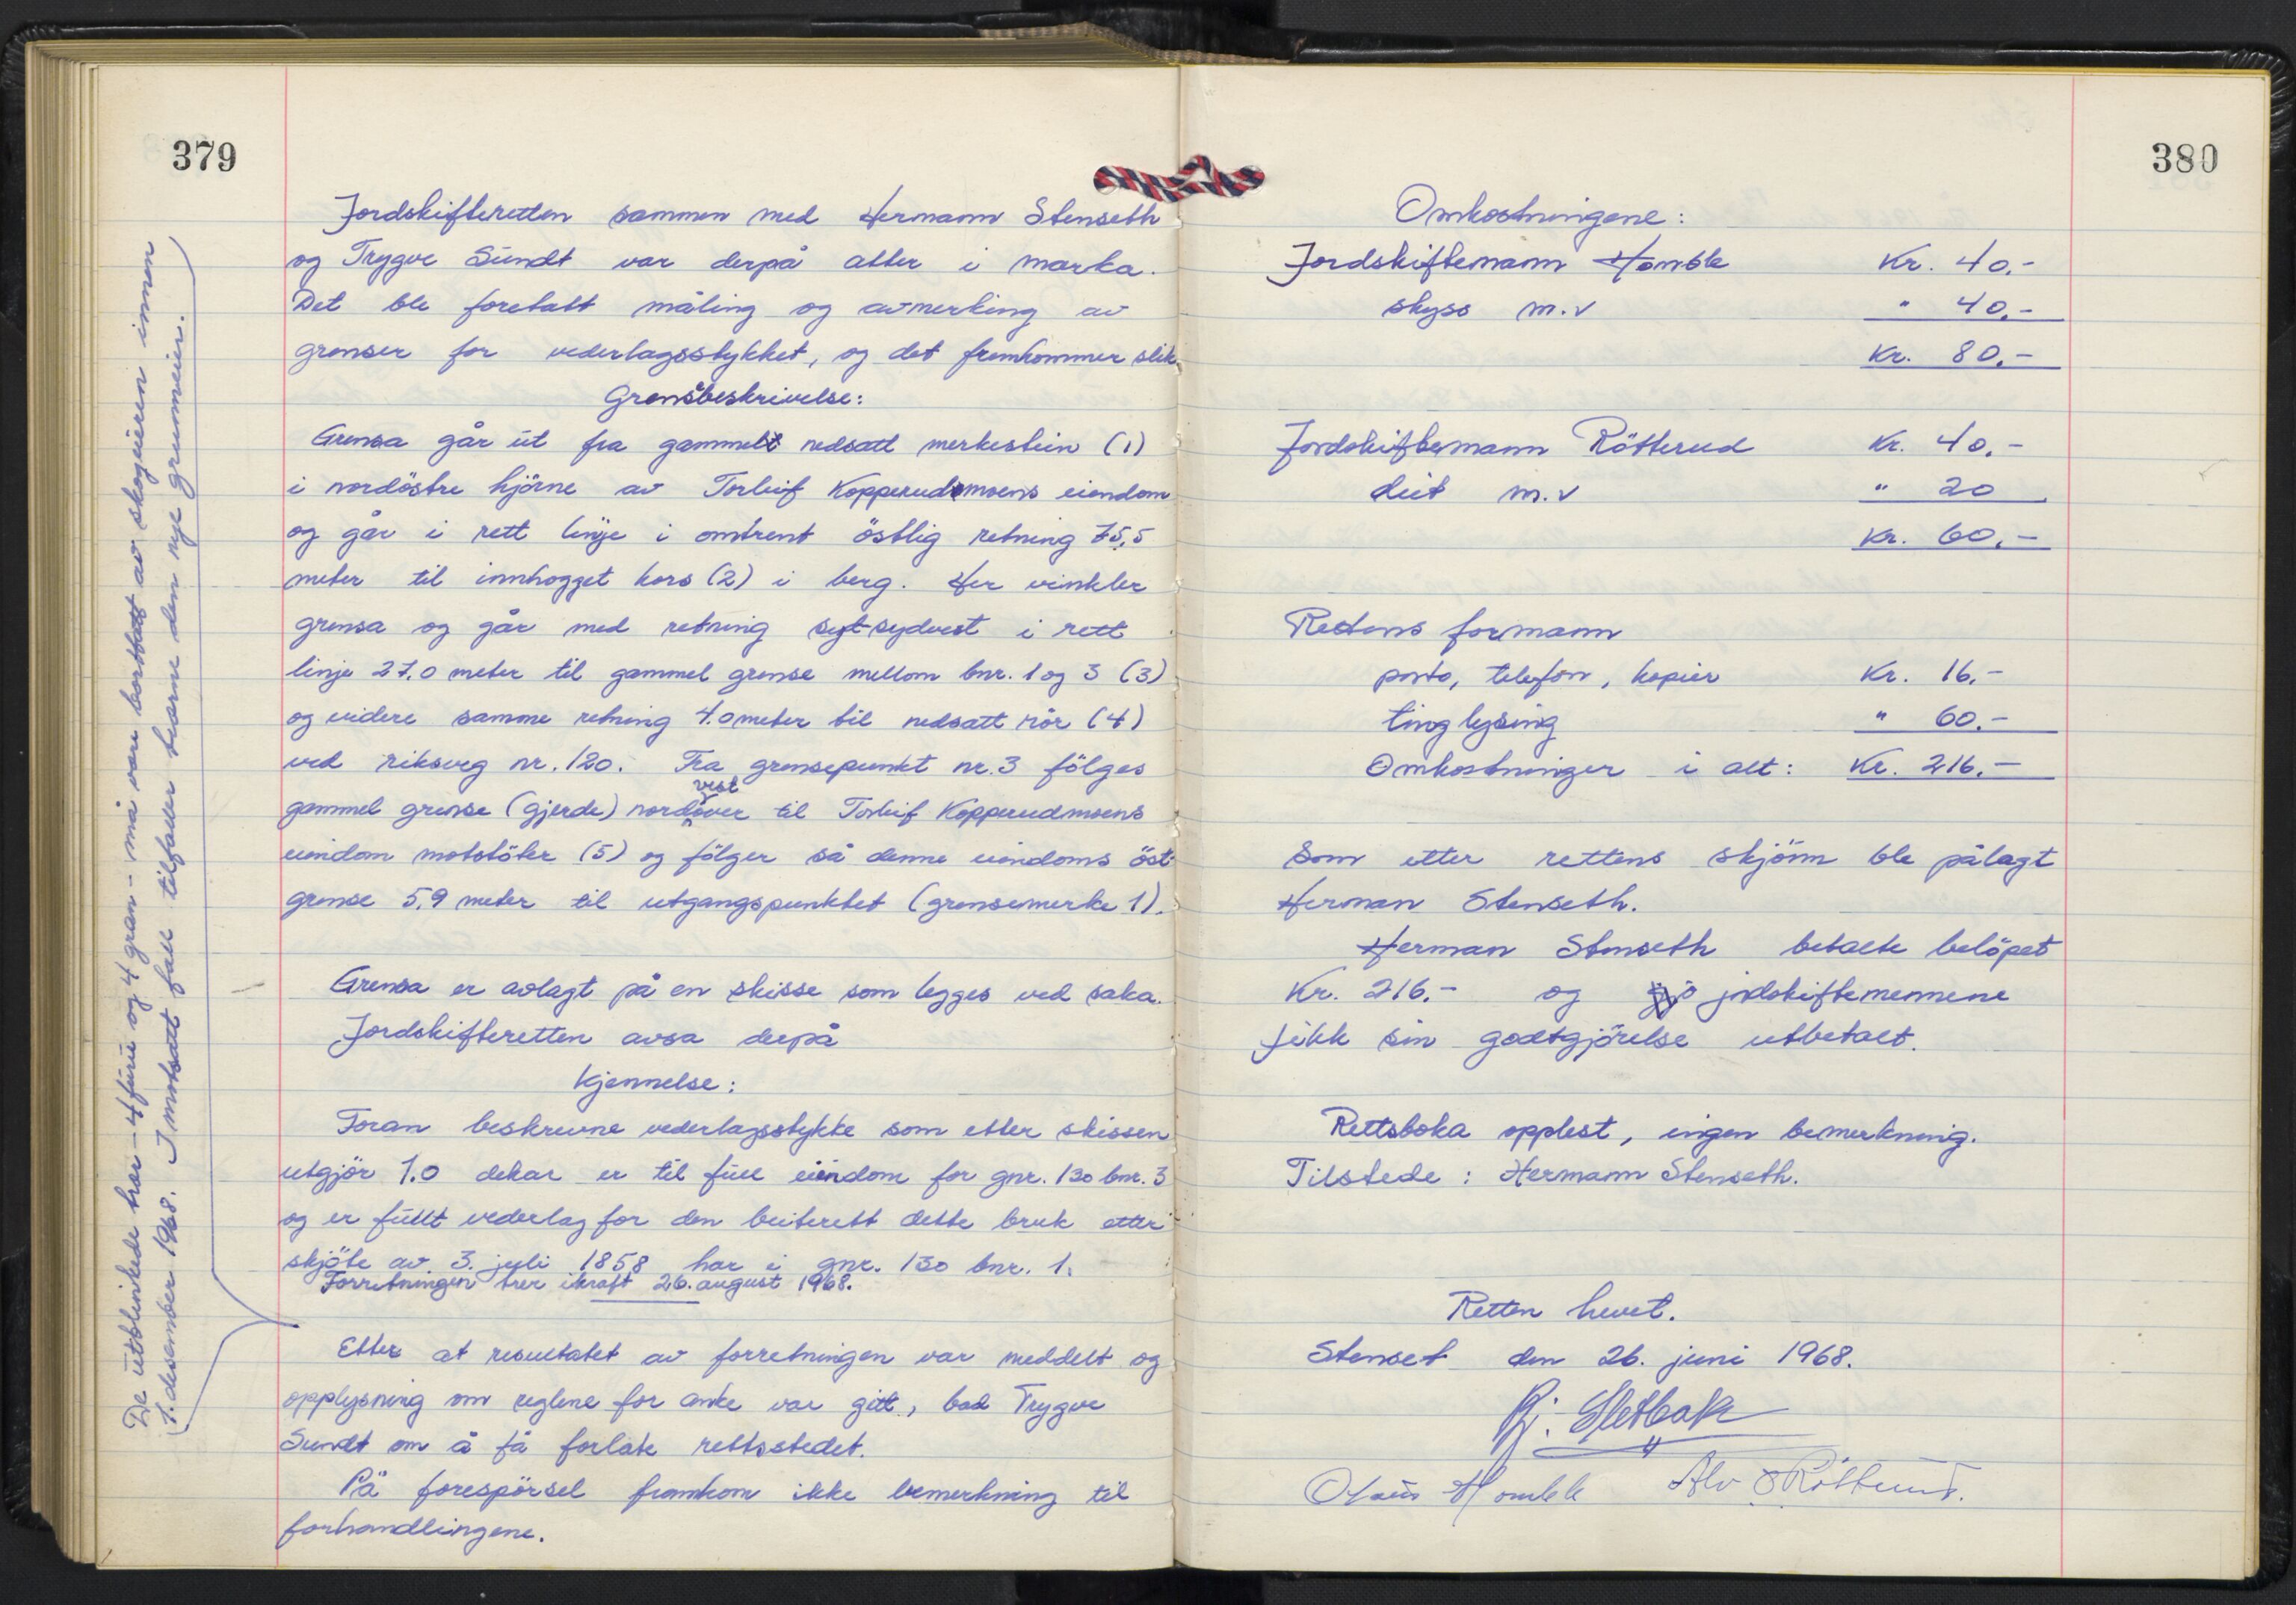 379
Jordskifteretten sammen med Hermann Stenseth
og Trygve Sundt var derpå atter i marka.
Det ble foretatt måling og avmerking av
grenser for vederlagsstykket, og det fremkommer slik
Grensbeskrivelse:
Grensa går ut fra gammelt nedsatt merkestein (1)
i nordöstre hjörne av Torleif Kopperudmoens eiendom
og går i rett linje i omtrent östlig retning 75,5
meter til innhogget kors (2) i berg. Her vinkler
grensa og går med retning syt-sydvest i rett
linje 27,0 meter til gammel grense mellom bnr. 1 og 3 (3)
og videre samme retning 4.0 meter til nedsatt rör (4)
ved riksveg nr. 120. Fra grensepunkt nr. 3 fölges
vest
gammel grense (gjerde) nordover til Torleif Kopperudmoens
eiendom motstöter (5) og fölger så denne eiendoms öst
grense 5,9 meter til utgangspunktet (grensemerke 1).
Grensa er avlagt på en skisse som legges ved saka.
Jordskifteretten avsa derpå
Kjennelse:
Foran beskrevne vederlagsstykke som etter skissen
utgjör 1.0 dekar er til full eiendom for gnr. 130 bnr. 3
og er fullt vederlag for den beiterett dette bruk etter
skjöte av 3. juli 1858 har i gnr. 130 bnr. 1.
Forretningen trer ikraft 26. august 1968.
Etter at resultatet av forretningen var meddelt og
opplysning om reglene for anke var gitt, bad Trygve
Sundt om å få forlate rettsstedet.
På forespörsel framkom ikke bemerkning til
forhandlingene.
De utblinkede trær - 4 furu og 4 gran - må være borttatt av skogeieren innen
1. desember 1968. I motsatt fall tilfaller trærne den nye grunneier.
380
Omkostningene:
Jordskiftemann Homble Kr. 40.-
skyss m.v " 40.-
Kr. 80.-
Jordskiftemann Rötterud Kr. 40.-
diet m.v " 20
Kr. 60.-
Rettens formann
porto, telefon, kopier Kr. 16.-
tinglysing " 60.-
Omkostninger i alt: Kr. 216.-
som etter rettens skjönn ble pålagt
Herman Stenseth.
Herman Stenseth betalte belöpet
Kr. 216.- og jordskiftemennene
fikk sin godtgjörelse utbetalt.
Rettsboka opplest, ingen bemerkning.
Tilstede: Hermann Stenseth.
Retten hevet.
Stenset den 26. juni 1968.
Bj. Sletbak
Olaus Homble Alv O Rötterud.